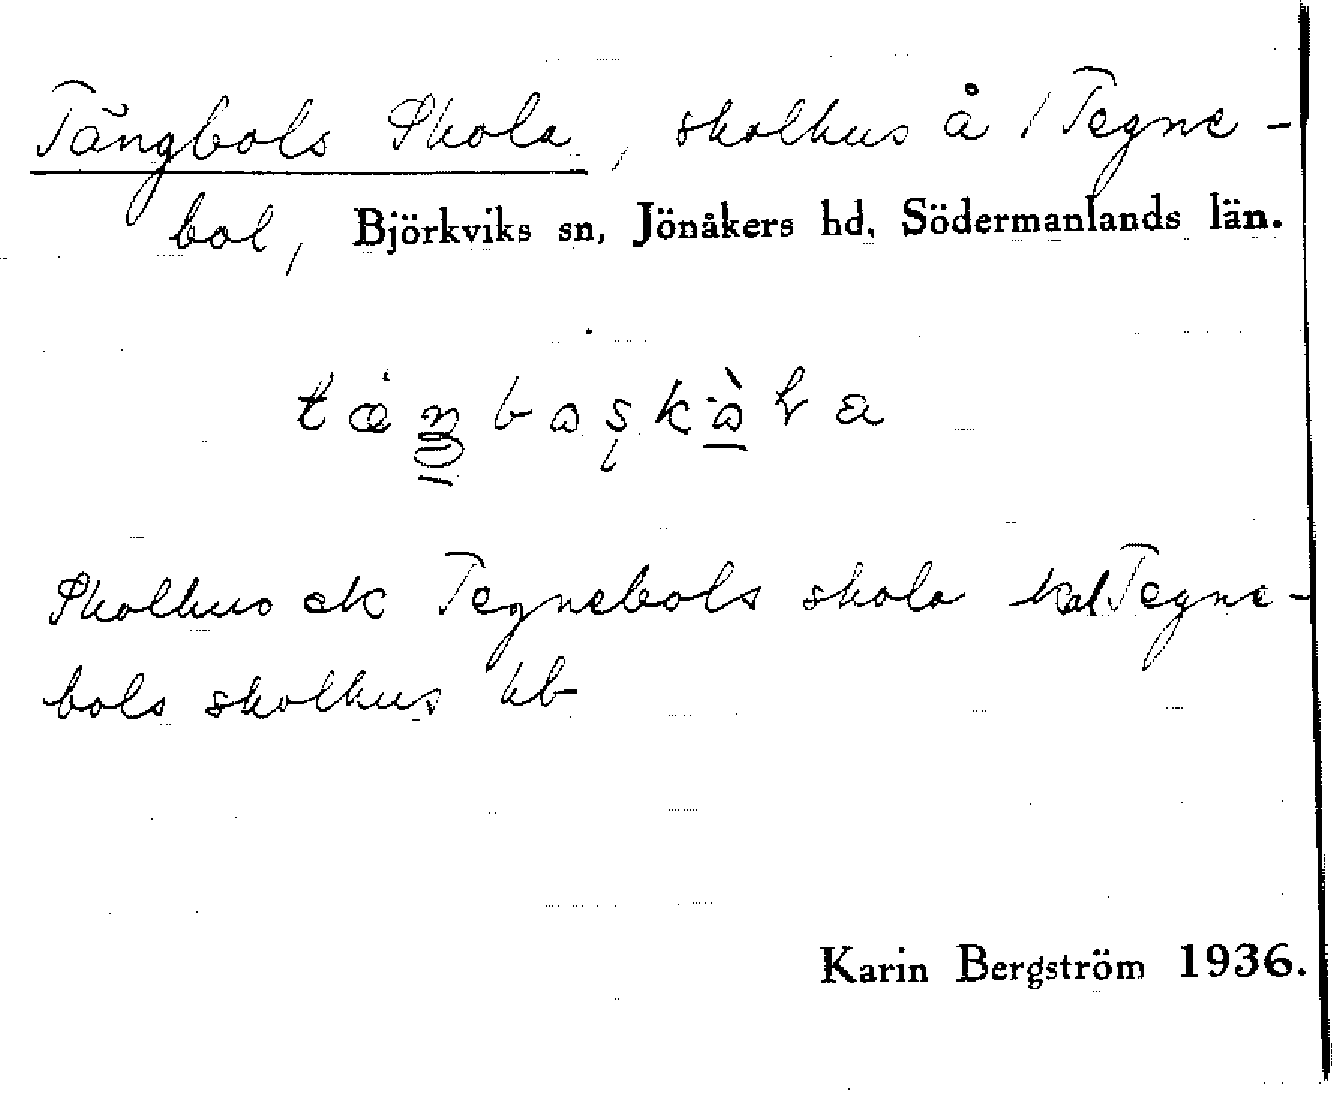 Tängbols Skola, skolhus å /Tegne-
bol, Björkviks sn, Jönåkers hd, Södermanlands län.
Skolhus ek Tegnebols skola kal Tegne-
bols skolhus hb
Karin Bergström 1936.